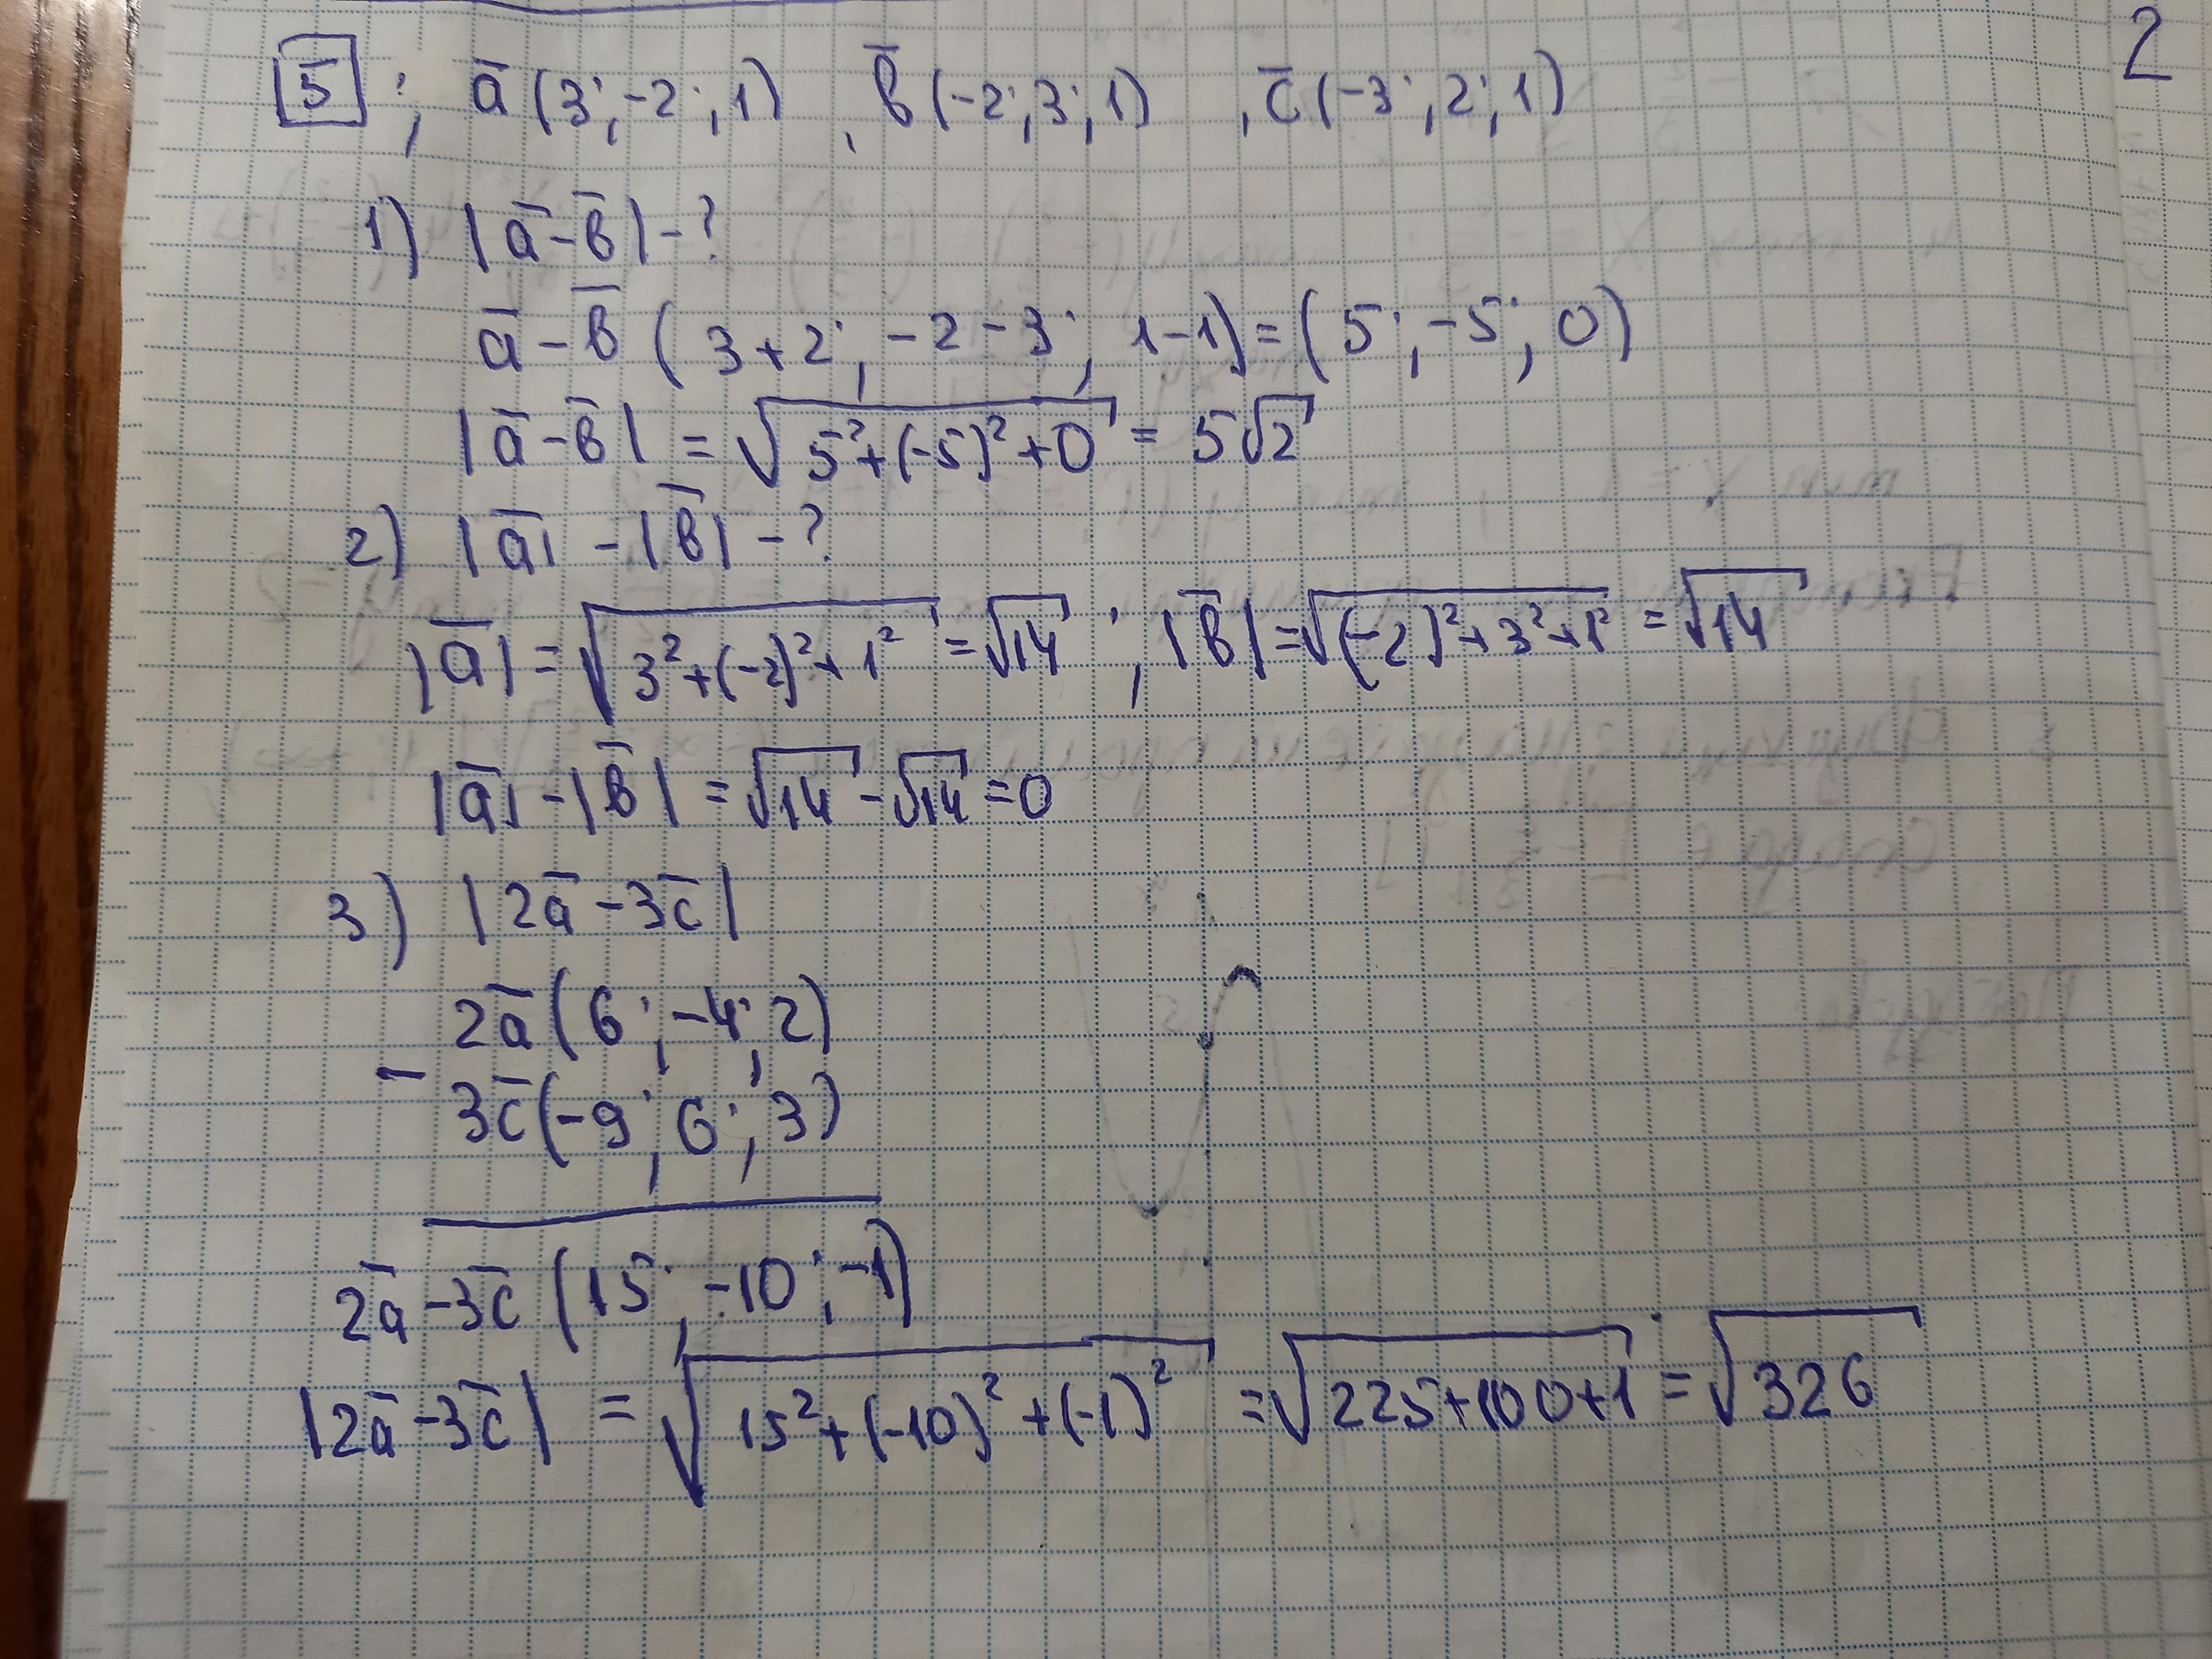 2
5 ; a̅ (3; -2; 1) , b̅ (-2; 3; 1) , c̅ (-3; 2; 1)
1) |a̅ - b̅| - ?
a̅ - b̅ (3+2; -2-3; 1-1) = (5; -5; 0)
|a̅ - b̅| = √(5²+(-5)²+0) = 5√2
2) |a̅| - |b̅| - ?
|a̅| = √(3²+(-2)²+1²) = √14 ; |b̅| = √((-2)²+3²+1²) = √14
|a̅| - |b̅| = √14 - √14 = 0
3) |2a̅ - 3c̅|
2a̅ (6; -4; 2)
- 3c̅ (-9; 6; 3)
2a̅ - 3c̅ (15; -10; -1)
|2a̅ - 3c̅| = √(15²+(-10)²+(-1)²) = √(225+100+1) = √326